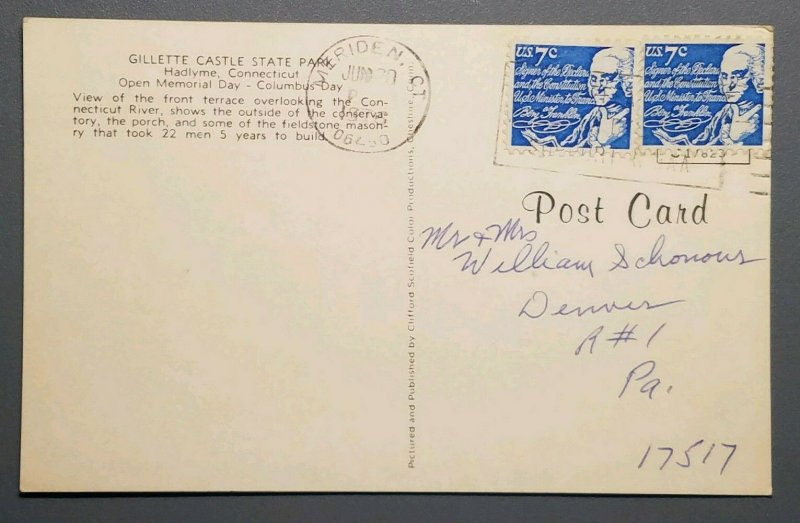 GILLETTE CASTLE STATE PARK
Hadlyme, Connecticut
Open Memorial Day - Columbus Day
View of the front terrace overlooking the Con-
necticut River, shows the outside of the conserva-
tory, the porch, and some of the fieldstone mason-
ry that took 22 men 5 years to build.
MERIDEN, CT
JUN 20
06450
Pictured and Published by Clifford Scofield Color Productions,
U.S. 7c
Signer of the Declara
and the Constitution
U.S. Minister to France
Benj. Franklin
U.S. 7c
Signer of the Declara
and the Constitution
U.S. Minister to France
Benj. Franklin
Post Card
Mr & Mrs
William Schonour
Denver
R#1
Pa.
17517